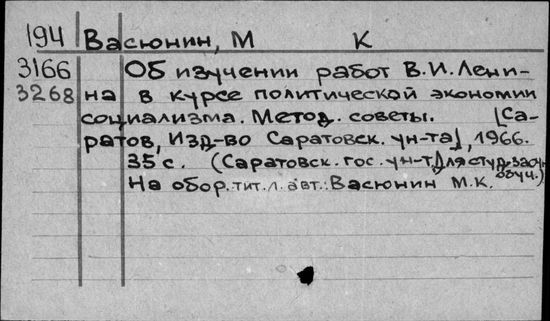 194 Васюнин, М К
3166 Об изучении работ В.И. Лени-
3268 на в курсе политической экономии
социализма. Метод. советы. [Са-
ратов, Изд-во Саратовск. ун-та], 1966.
35 с. (Саратовск. гос. ун-т. Для студ. заочн.
обуч.)
На обор. тит. л. авт.: Васюнин М.К.